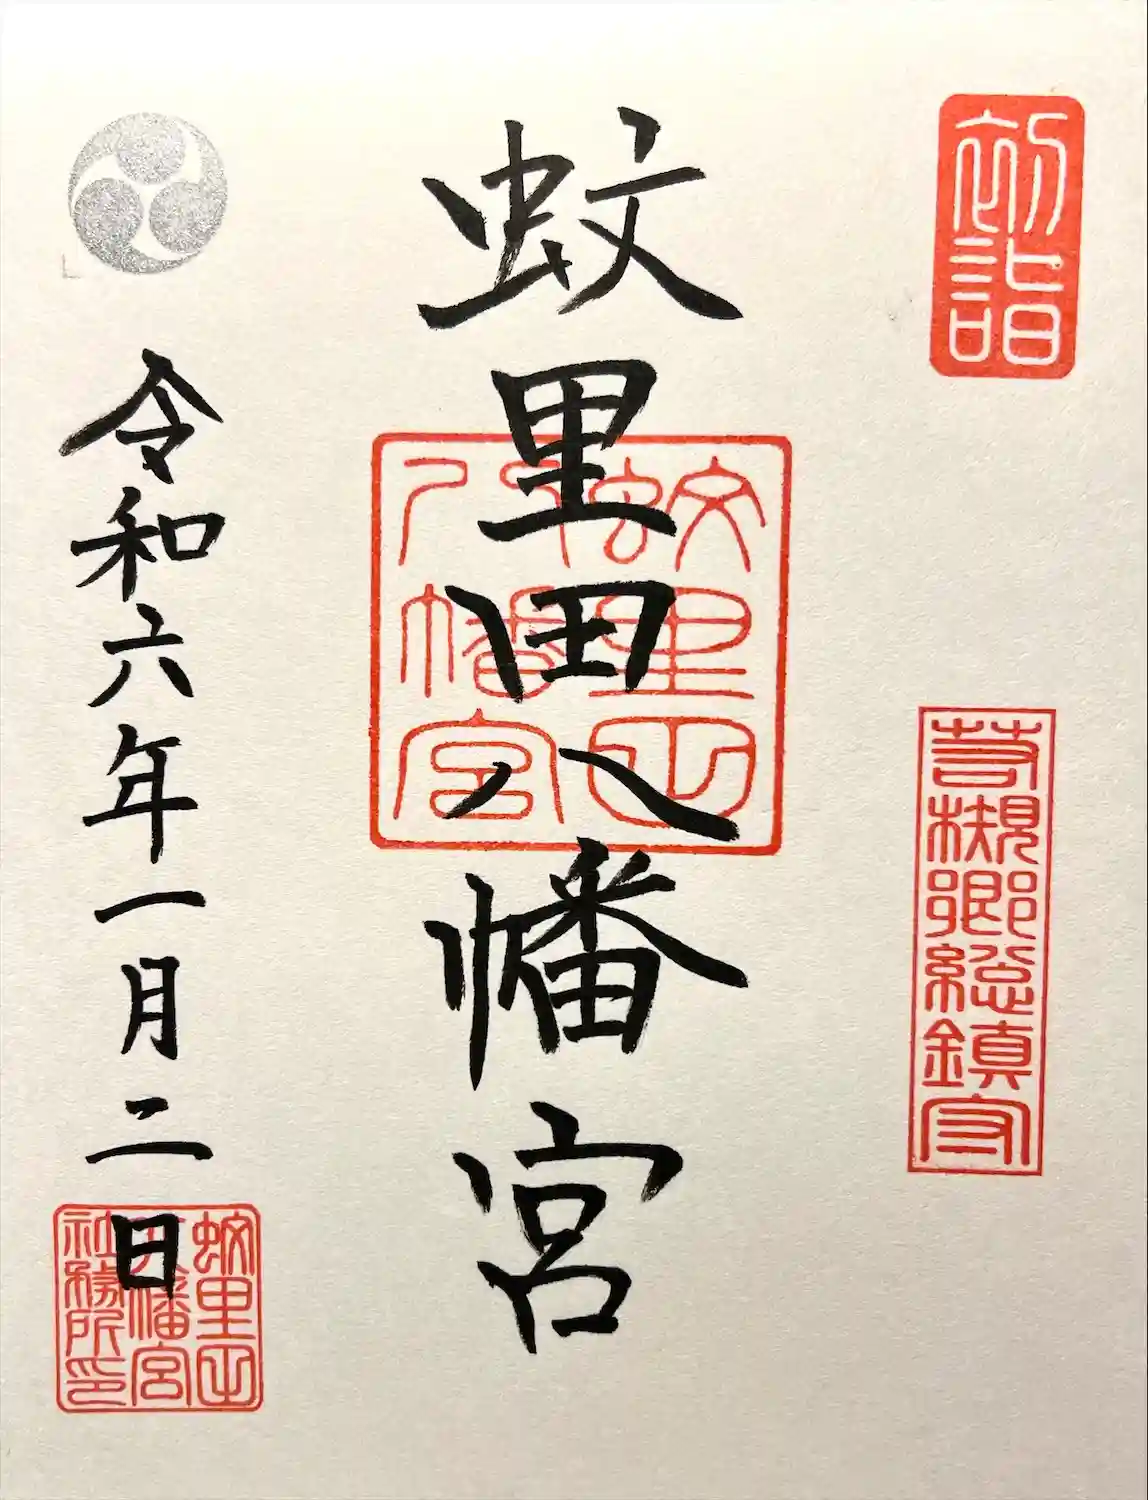 初詣
若槻郷総鎮守
蚊里田八幡宮
蚊里田
八幡宮
令和六年一月二日
蚊里田
八幡宮
社務所印